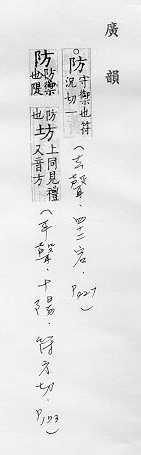 廣韻
○防守禦也符況切一(去聲.四十一宕.P427)
防防禦也隄也坊上同見禮又音方(平聲.十陽.符方切.P173)